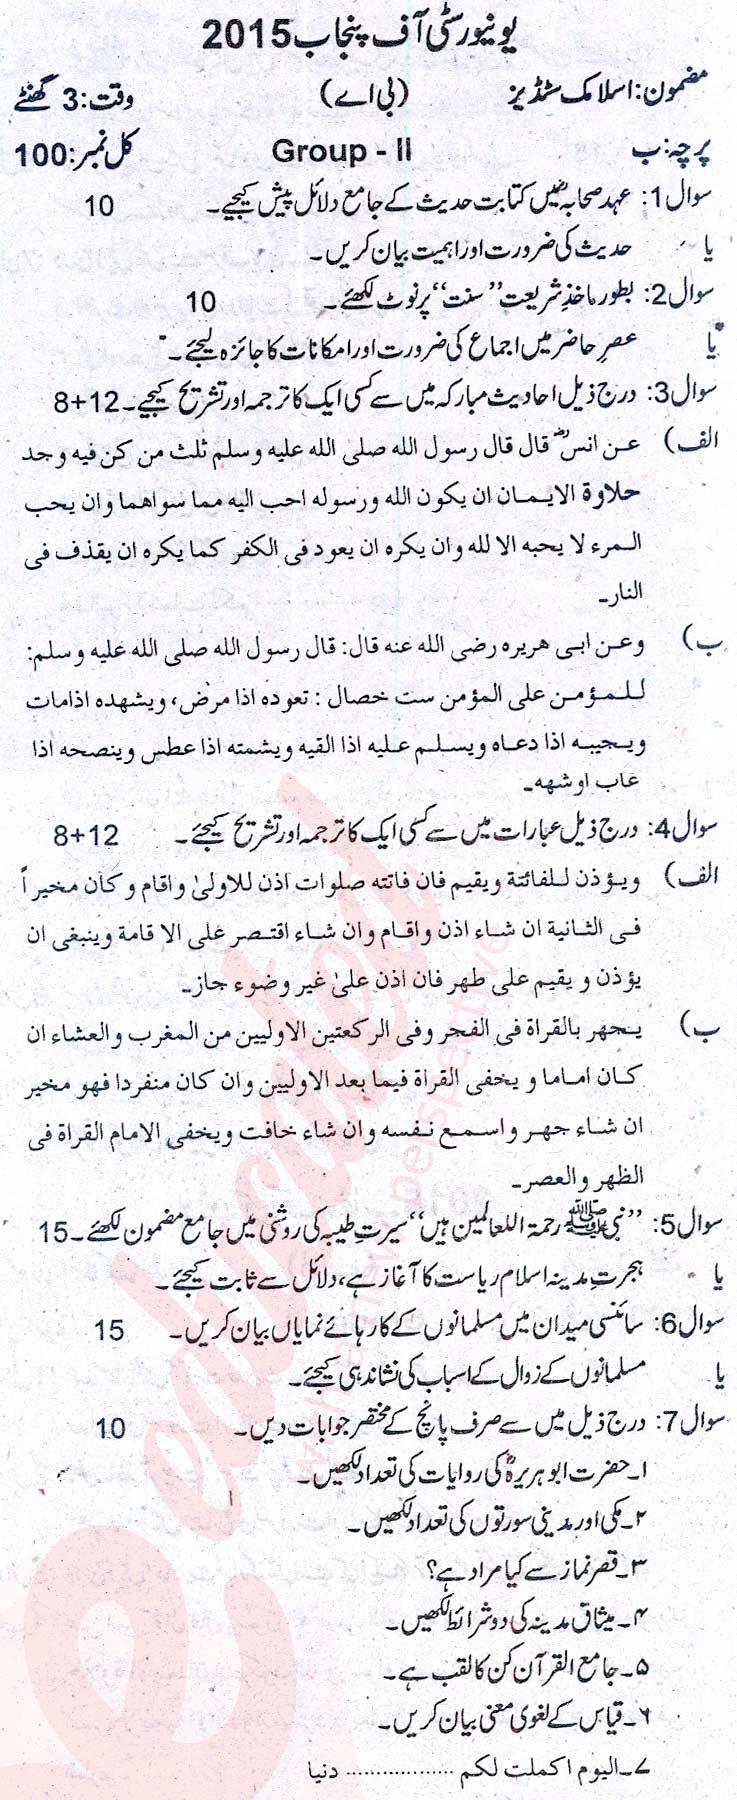 یونیورسٹی آف پنجاب 2015
مضمون: اسلامک سٹڈیز (بی اے) وقت: 3 گھنٹے
پرچہ: ب Group - II کل نمبر: 100
سوال 1: عہد صحابہؓ میں کتابت حدیث کے جامع دلائل پیش کیجیے۔ 10
یا حدیث کی ضرورت اور اہمیت بیان کریں۔
سوال 2: بطور ماخذِ شریعت "سنت" پر نوٹ لکھئے۔ 10
یا عصرِ حاضر میں اجماع کی ضرورت اور امکانات کا جائزہ لیجئے۔
سوال 3: درج ذیل احادیث مبارکہ میں سے کسی ایک کا ترجمہ اور تشریح کیجیے۔ 8+12
الف) عن انسؓ قال قال رسول الله صلى الله عليه وسلم ثلث من كن فيه وجد
حلاوة الايمان ان يكون الله ورسوله احب اليه مما سواهما وان يحب
المرء لا يحبه الا لله وان يكره ان يعود فى الكفر كما يكره ان يقذف فى
النار۔
ب) وعن ابى هريره رضى الله عنه قال: قال رسول الله صلى الله عليه وسلم:
للمؤمن على المؤمن ست خصال: تعوده اذا مرض، ويشهده اذامات
ويجيبه اذا دعاه ويسلم عليه اذا القيه ويشمته اذا عطس وينصحه اذا
غاب اوشهه۔
سوال 4: درج ذیل عبارات میں سے کسی ایک کا ترجمہ اور تشریح کیجئے۔ 8+12
الف) ويؤذن للفائتة ويقيم فان فاتته صلوات اذن للاولىٰ واقام وكان مخيراً
فى الثانية ان شاء اذن واقام وان شاء اقتصر على الا قامة وينبغى ان
يؤذن و يقيم على طهر فان اذن علىٰ غير وضوء جاز۔
ب) يجهر بالقراة فى الفجر وفى الركعتين الاوليين من المغرب والعشاء ان
كان اماما و يخفى القراة فيما بعد الاوليين وان كان منفردا فهو مخير
ان شاء جهر واسمع نفسه وان شاء خافت ويخفى الامام القراة فى
الظهر والعصر۔
سوال 5: "نبی ﷺ رحمۃ اللعالمین ہیں" سیرتِ طیبہ کی روشنی میں جامع مضمون لکھئے۔ 15
یا ہجرتِ مدینہ اسلام ریاست کا آغاز ہے، دلائل سے ثابت کیجئے۔
سوال 6: سائنسی میدان میں مسلمانوں کے کارہائے نمایاں بیان کریں۔ 15
یا مسلمانوں کے زوال کے اسباب کی نشاندہی کیجئے۔
سوال 7: درج ذیل میں سے صرف پانچ کے مختصر جوابات دیں۔ 10
۱۔ حضرت ابو ہریرہؓ کی روایات کی تعداد لکھیں۔
۲۔ مکی اور مدینی سورتوں کی تعداد لکھیں۔
۳۔ قصر نماز سے کیا مراد ہے؟
۴۔ میثاق مدینہ کی دو شرائط لکھیں۔
۵۔ جامع القرآن کن کا لقب ہے۔
۶۔ قیاس کے لغوی معنی بیان کریں۔
۷۔ اليوم اكملت لكم .................. دنيا